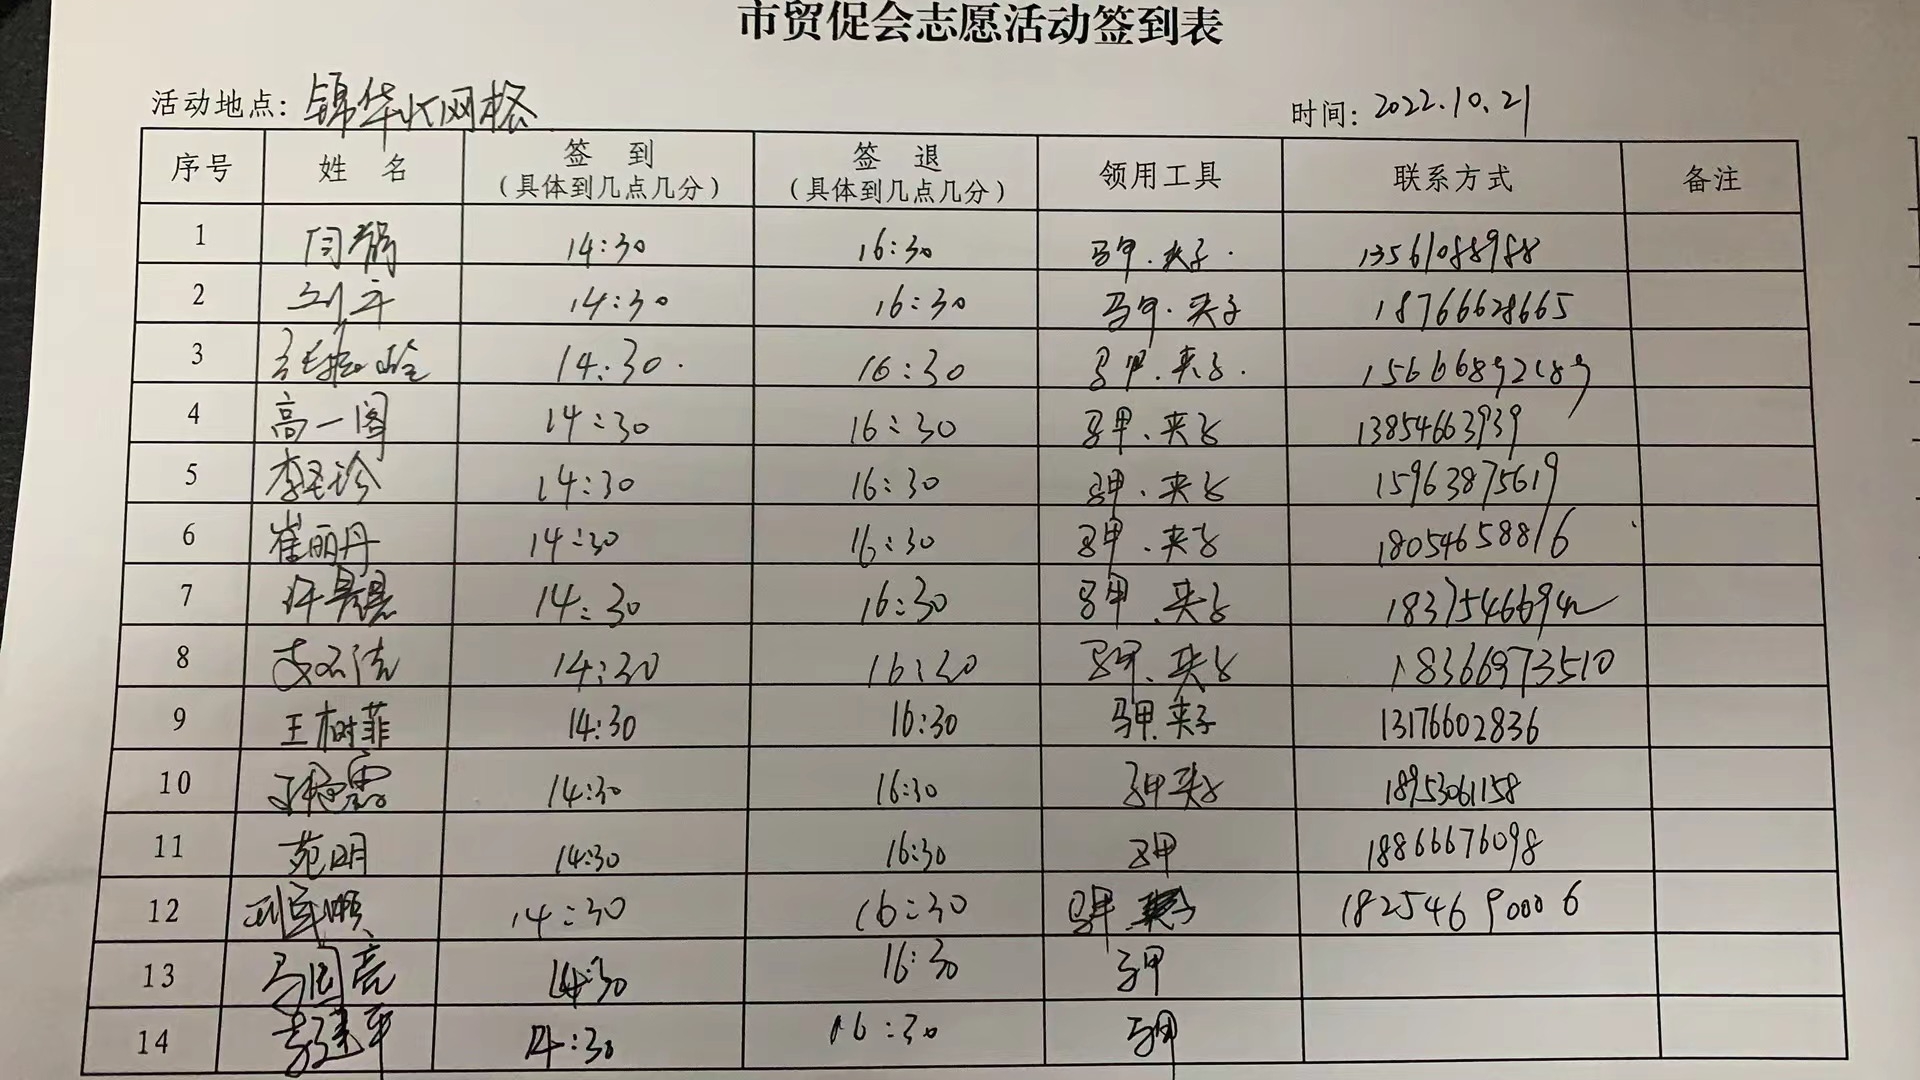 市贸促会志愿活动签到表
活动地点: 锦华 网格 时间: 2022.10.21
序号 姓 名 签 到 (具体到几点几分) 签 退 (具体到几点几分) 领用工具 联系方式 备注
1 闫鹃 14:30 16:30 马甲.夹子. 13561088988
2 刘平 14:30 16:30 马甲.夹子 18766628665
3 14:30. 16:30 马甲.夹子.
4 高一阁 14:30 16:30 马甲、夹子 13854663939
5 李玉珍 14:30 16:30 马甲、夹子 15963875619
6 崔丽丹 14:30 16:30 马甲、夹子 18054658816
7 许 14:30 16:30 马甲、夹子
8 14:30 16:30 马甲、夹子 18366973510
9 王树菲 14:30 16:30 马甲.夹子 13176602836
10 14:30 16:30 马甲夹子 18953061158
11 苑明 14:30 16:30 马甲 18866676098
12 14:30 16:30 马甲 18254690006
13 马国亮 14:30 16:30 马甲
14 李建军 14:30 16:30 马甲